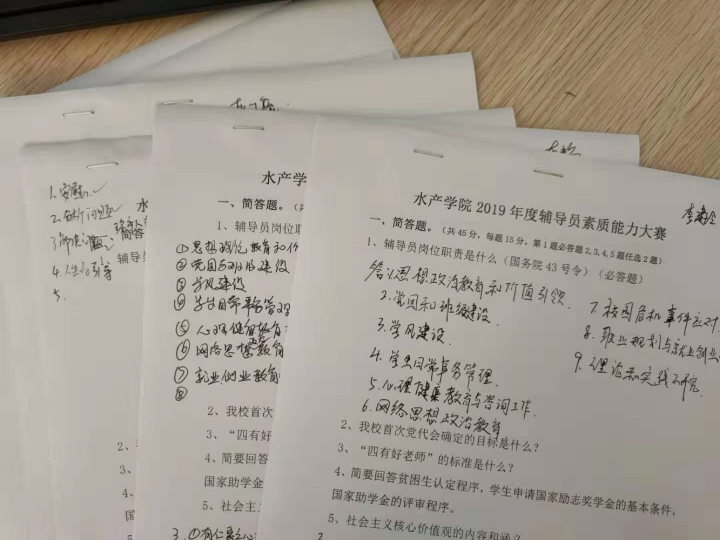 1.安慰
2.分析问题
4.人生的引导
5.
水产学
一、简答题。
1、辅导员岗位职
①思想政治教育和价
②党团与班级建设
③学风建设
④学生日常事务管理
⑤心理健康教育
⑥网络思想教育
⑦就业创业教育
⑧
2、我校首次
3、“四有好
4、简要回答
国家助学金
5、社会主义
3.①有仁爱之心
水产学院 2019 年度辅导员素质能力大赛
一、简答题。(共 45 分，每题 15 分，第 1 题必答题 2,3,4,5 题任选 2 题)
1、辅导员岗位职责是什么（国务院 43 号令）（必答题）
答:1.思想政治教育和价值引领
2.党团和班级建设.
3.学风建设.
4.学生日常事务管理.
5.心理健康教育与咨询工作.
6.网络思想政治教育
7.校园危机事件应对.
8.职业规划与就业创业
9.理论和实践研究.
2、我校首次党代会确定的目标是什么？
3、“四有好老师”的标准是什么？
4、简要回答贫困生认定程序，学生申请国家励志奖学金的基本条件，
国家助学金的评审程序。
5、社会主义核心价值观的内容和涵义